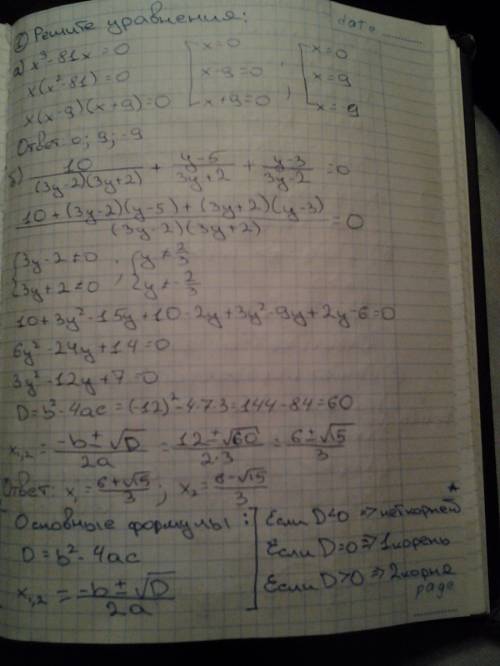 ② Решите уравнения:
date
а) x³-81x=0
x(x²-81)=0
x(x-9)(x+9)=0
[x=0
x-9=0
x+9=0 ;
[x=0
x=9
x=-9
Ответ: 0; 9; -9
б) 10/((3y-2)(3y+2)) + (y-5)/(3y+2) + (y-3)/(3y-2) =0
(10+(3y-2)(y-5)+(3y+2)(y-3))/((3y-2)(3y+2)) =0
{3y-2≠0 ; {y≠2/3
{3y+2≠0 {y≠-2/3
10+3y²-15y+10-2y+3y²-9y+2y-6=0
6y²-24y+14=0
3y²-12y+7=0
D=b²-4ac=(-12)²-4·7·3=144-84=60
x₁,₂=(-b±√D)/2a=(12±√60)/(2·3)=(6±√15)/3
Ответ: x₁=(6+√15)/3; x₂=(6-√15)/3
Основные формулы:
D=b²-4ac
x₁,₂=(-b±√D)/2a
Если D<0 => нет корней
Если D=0 => 1 корень
Если D>0 => 2 корня
page